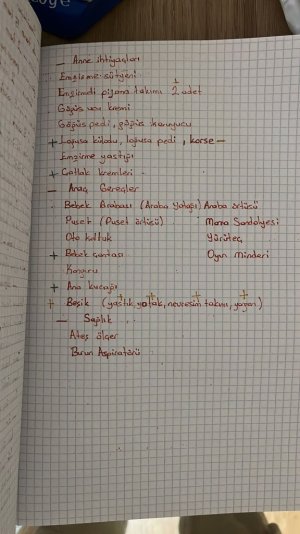 — Anne ihtiyaçları
Emzirme sütyeni
Emzirmeli pijama takımı 2 adet
Göğüs ucu kremi
Göğüs pedi, göğüs koruyucu
+ Loğusa külodu, loğusa pedi, korse —
Emzirme yastığı
+ Çatlak kremleri
— Araç Gereçler
Bebek Arabası (Araba yatağı) Araba örtüsü
Puset (Puset örtüsü) Mama Sandalyesi
Oto koltuk Yürüteç
+ Bebek çantası Oyun Minderi
Kanguru
+ Ana kucağı
+ Beşik (yastık yatak, nevresim takımı, yorgan)
— Sağlık
Ateş ölçer
Burun Aspiratörü